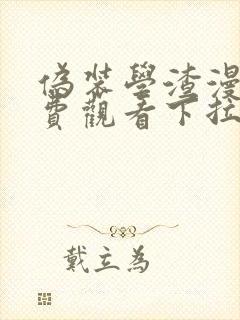 偽裝學渣漫
費觀看下拉
戴立為